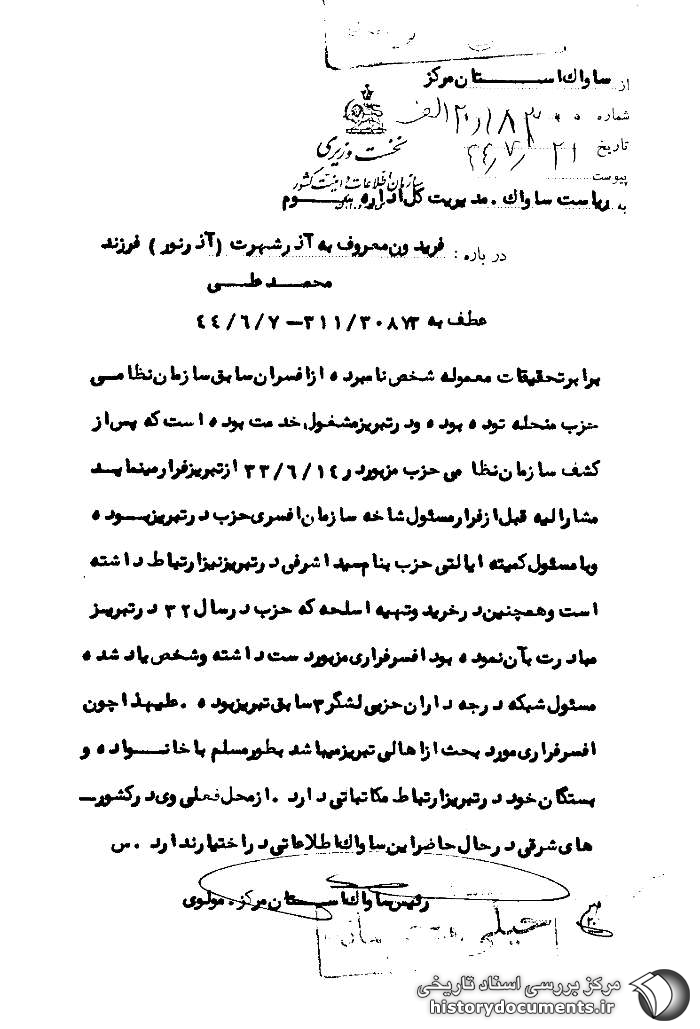 از ساواك استان مركز
شماره ۲۰/۱۸۳۰۰ الف
تاریخ ۴۴/۷/۲۱
پیوست
نخست وزیری
سازمان اطلاعات و امنیت کشور
به ریاست ساواك . مدیریت كل اداره سوم
درباره : فریدون معروف به آذرشهرت (آذرنور) فرزند
محمد علی
عطف به ۳۱۱/۳۰۸۷۳ – ۴۴/۶/۷
برابر تحقیقات معموله شخص نامبرده از افسران سابق سازمان نظامی
حزب منحله توده بوده و در تبریز مشغول خدمت بوده است که پس از
کشف سازمان نظامی حزب مزبور در ۳۳/۶/۱۴ از تبریز فرار مینماید
مشارالیه قبل از فرار مسئول شاخه سازمان افسری حزب در تبریز بوده
و با مسئول کمیته ایالتی حزب بنام سید اشرفی در تبریز نیز ارتباط داشته
است و همچنین در خرید و تهیه اسلحه که حزب در سال ۳۲ در تبریز
مبادرت بآن نموده بود افسر فراری مزبور دست داشته و شخص یاد شده
مسئول شبکه درجه داران حزبی لشگر ۳ سابق تبریز بوده . علیهذا چون
افسر فراری مورد بحث از اهالی تبریز میباشد بطور مسلم با خانواده و
بستگان خود در تبریز ارتباط مکاتباتی دارد . از محل فعلی وی در کشور–
های شرقی در حال حاضر این ساواك اطلاعاتی در اختیار ندارد . س
رئیس ساواك استان مرکز . مولوی
خیلی
مرکز بررسی اسناد تاریخی
historydocuments.ir